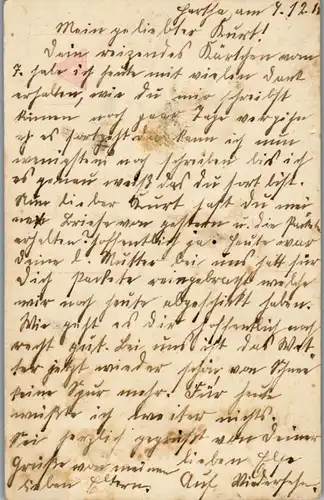 Hertha, am 9.12.
Mein geliebter Kurt!
Dein reizendes Kärtchen vom
7. habe ich heute mit vielen Dank
erhalten, wie du mir schreibst
können noch paar Tage vergehn
eh es fortgeht da kann ich nun
wenigstens noch schreiben bis ich
es genau weiß das du fort bist.
Nun lieber Kurt hast du meine
Briefe von gestern u. die Packete
erhalten? hoffentlich ja. Heute war
deine l. Mutter bei uns hatt für
Dich Packete reingebracht welche
wir noch heute abgeschickt haben.
Wie geht es dir hoffentlich noch
recht gut. Bei uns ist das Wet
ter jetzt wieder schön von Schnee
keine Spur mehr. Für heute
wüßte ich weiter nichts.
Sei herzlich gegrüßt von Deiner
Grüße von meinen lieben Else
lieben Eltern. Auf Wiedersehn.